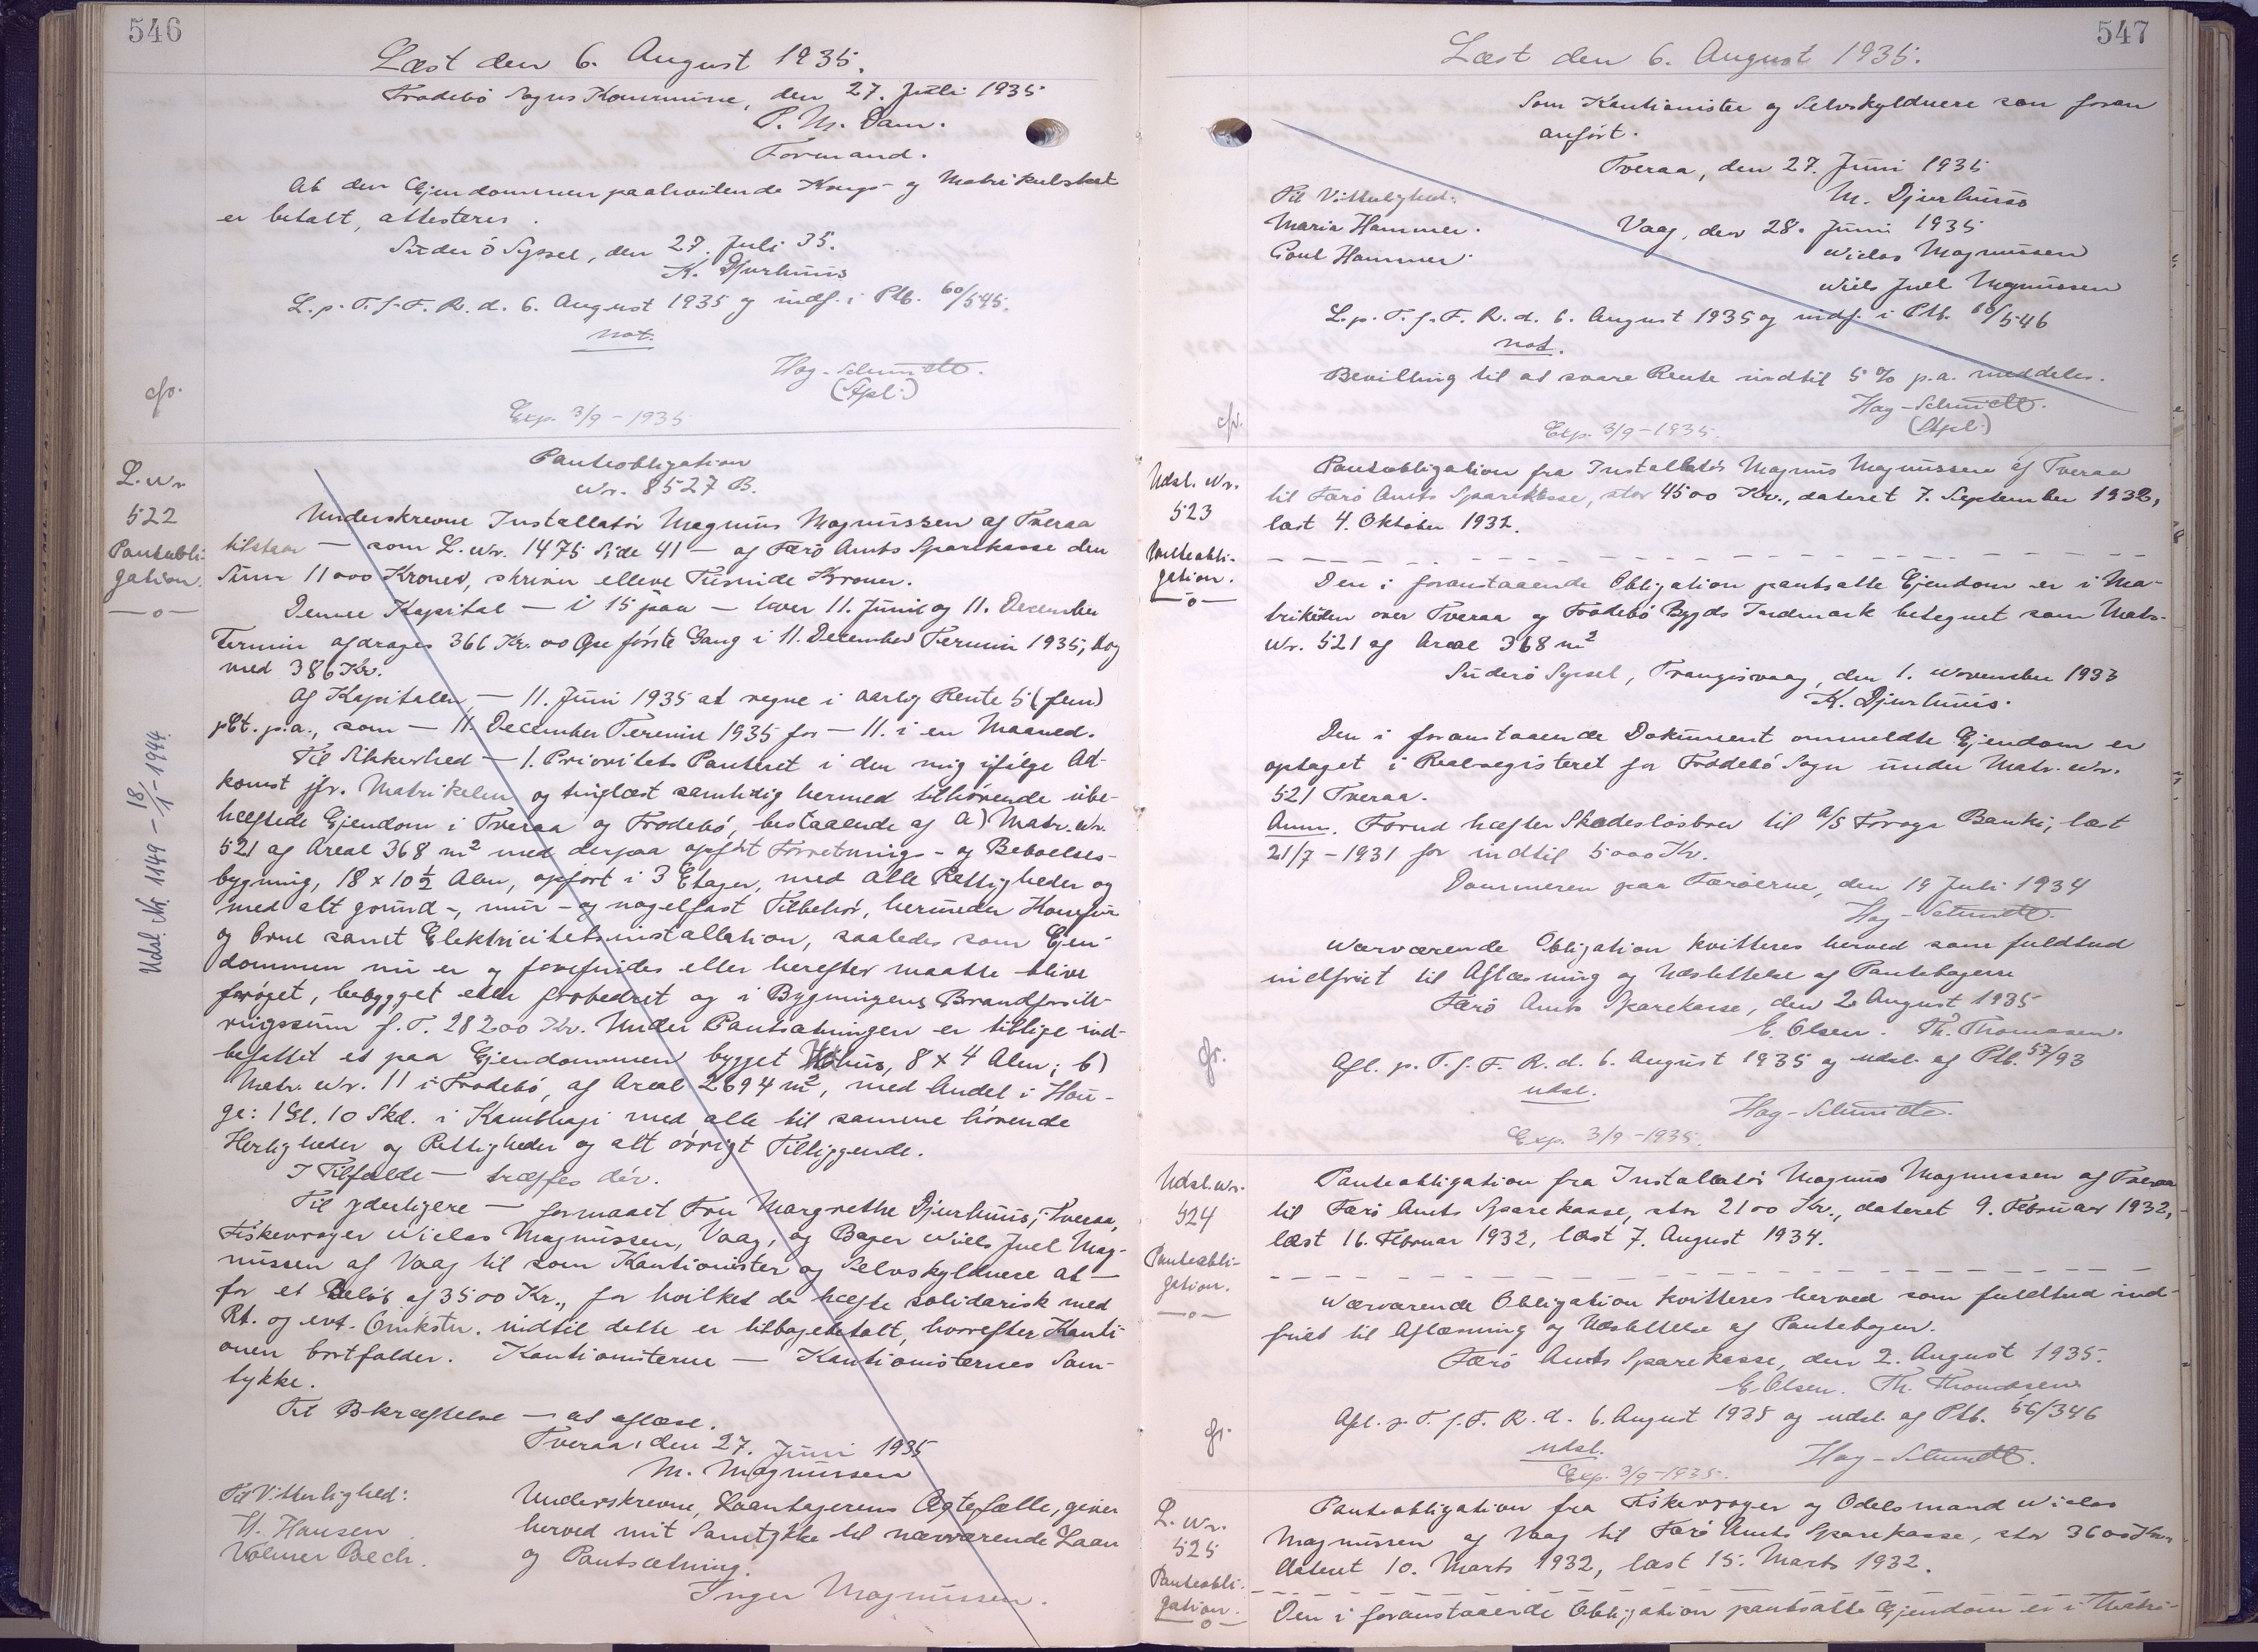 546
Læst den 6. August 1935.
Frodebö Sogns Kommune, den 27. Juli 1935
P. M. Dam.
Formand.
At den Ejendommen paahvilende Kongs- og Matrikulskat
er betalt, attesteres.
Suderö Syssel, den 27. Juli 35.
K. Djurhuus
L. p. T. f. F. R. d. 6. August 1935 og indf. i Ptb. 60/545.
not.
Hag-Schmidt.
(Spl.)
cfr.
Exp. 3/9-1935
L. Nr.
522
Panteobli-
gation.
—o—
Udsl. Nr. 1149 - 18/1-1944
Panteobligation
Nr. 8527 B.
Underskrevne Installatör Magnus Magnussen af Tveraa
tilstaar — som L. Nr. 1475 Side 41 — af Færö Amts Sparekasse den
Sum 11000 Kroner, skriver elleve Tusinde Kroner.
Denne Kapital — i 15 paa — hver 11. Juni og 11. December
Termin afdrages 366 Kr. 00 Øre förste Gang i 11. December Termin 1935, dog
med 386 Kr.
Af Kapitalen — 11. Juni 1935 at regne i aarlig Rente 5 (fem)
pCt. p.a., som — 11. December Termin 1935 for — 11. i en Maaned.
Til Sikkerhed — 1. Prioritets Panteret i den mig ifölge Ad-
komst jfr. Matrikelen og tinglæst samtidig hermed tilhörende ube-
hæftede Ejendom i Tveraa og Frodebö, bestaaende af a) Matr. Nr.
521 af Areal 368 m² med derpaa opfört Forretnings- og Beboelses-
bygning, 18 x 10½ Alen, opfört i 3 Etager, med alle Rettigheder og
med alt grund-, mur- og nagelfast Tilbehör, herunder Komfur
og Ovne samt Elektricitetsinstallation, saaledes som Ejen-
dommen nu er og forefindes eller herefter maatte blive
foröget, bebygget eller forbedret og i Bygningens Brandforsik-
ringssum f. T. 28200 Kr. Under Pantsætningen er tillige ind-
befattet et paa Ejendommen bygget Höhus, 8 x 4 Alen; b)
Matr. Nr. 11 i Frodebö, af Areal 2694 m², med Andel i Hau-
ge: 1 Gl. 10 Skd. i Kambhagi med alle til samme hörende
Herligheder og Rettigheder og alt övrigt Tilliggende.
I Tilfælde — træffes dér.
Til yderligere — formaaet Fru Margrethe Djurhuus, Tveraa,
Fiskevrager Niclas Magnussen, Vaag, og Bager Niels Juel Mag-
nussen af Vaag til som Kautionister og Selvskyldnere at —
for et Belöb af 3500 Kr., for hvilket de hæfte solidarisk med
Rt. og evt. Omkstn. indtil dette er tilbagebetalt, hvorefter Kauti
onen bortfalder. Kautionisterne — Kautionisternes Sam-
tykke.
Til Bekræftelse — at aflæse.
Tveraa, den 27. Juni 1935
M. Magnussen
Til Vitterlighed:
H. Hansen
Volmer Bech.
Underskrevne, Laantagerens Ægtefælle, giver
herved mit Samtykke til nærværende Laan
og Pantsætning.
Inger Magnussen.
547
Læst den 6. August 1935.
Som Kautionister og Selvskyldnere som foran
anfört.
Tveraa, den 27. Juni 1935
M. Djurhuus
Til Vitterlighed:
Maria Hammer.
Poul Hammer.
Vaag, den 28. Juni 1935
Niclas Magnussen
Niels Juel Magnussen
L. p. T. f. F. R. d. 6. August 1935 og indf. i Ptb. 60/546
not.
Bevilling til at svare Rente indtil 5 % p.a. meddeles.
Hag-Schmidt.
(Spl.)
cfr.
Exp. 3/9-1935.
Udsl. Nr.
523
Panteobli-
gation.
—o—
Panteobligation fra Installatör Magnus Magnussen af Tveraa
til Færö Amts Sparekasse, stor 4500 Kr., dateret 7. September 1932,
læst 4. Oktober 1932.
Den i foranstaaende Obligation pantsatte Ejendom er i Ma-
trikelen over Tveraa og Frodebö Bygds Indmark betegnet som Matr.
Nr. 521 af Areal 368 m²
Suderö Syssel, Trangisvaag, den 1. November 1933
K. Djurhuus.
Den i foranstaaende Dokument ommeldte Ejendom er
optaget i Realregisteret for Frodebö Sogn under Matr. Nr.
521 Tveraa.
Anm. Forud hæfter Skadeslösbrev til A/S Foroya Banki, læst
21/7-1931 for indtil 5000 Kr.
Dommeren paa Færöerne, den 19 Juli 1934
Hag-Schmidt.
Nærværende Obligation kvitteres herved som fuldtud
indfriet til Aflæsning og Udslettelse af Pantebogen
Færö Amts Sparekasse, den 2 August 1935
E. Olsen. Th. Thomassen.
Afl. p. T. f. F. R. d. 6. August 1935 og udsl. af Ptb. 57/93
udsl.
Hag-Schmidt.
cfr.
Exp. 3/9-1935.
Udsl. Nr.
524
Panteobli-
gation.
—o—
Panteobligation fra Installatör Magnus Magnussen af Tveraa
til Færö Amts Sparekasse, stor 2100 Kr., dateret 9. Februar 1932,
læst 16. Februar 1932, læst 7. August 1934.
Nærværende Obligation kvitteres herved som fuldtud ind-
friet til Aflæsning og Udslettelse af Pantebogen.
Færö Amts Sparekasse, den 2. August 1935.
E. Olsen. Th. Thomassen
Afl. p. T. f. F. R. d. 6. August 1935 og udsl. af Ptb. 56/346
udsl.
Hag-Schmidt.
cfr.
Exp. 3/9-1935.
L. Nr.
525
Panteobli-
gation.
—o—
Panteobligation fra Fiskevrager og Odelsmand Niclas
Magnussen af Vaag til Færö Amts Sparekasse, stor 3600 Kr.
dateret 10. Marts 1932, læst 15. Marts 1932.
Den i foranstaaende Obligation pantsatte Ejendom er i Matri-